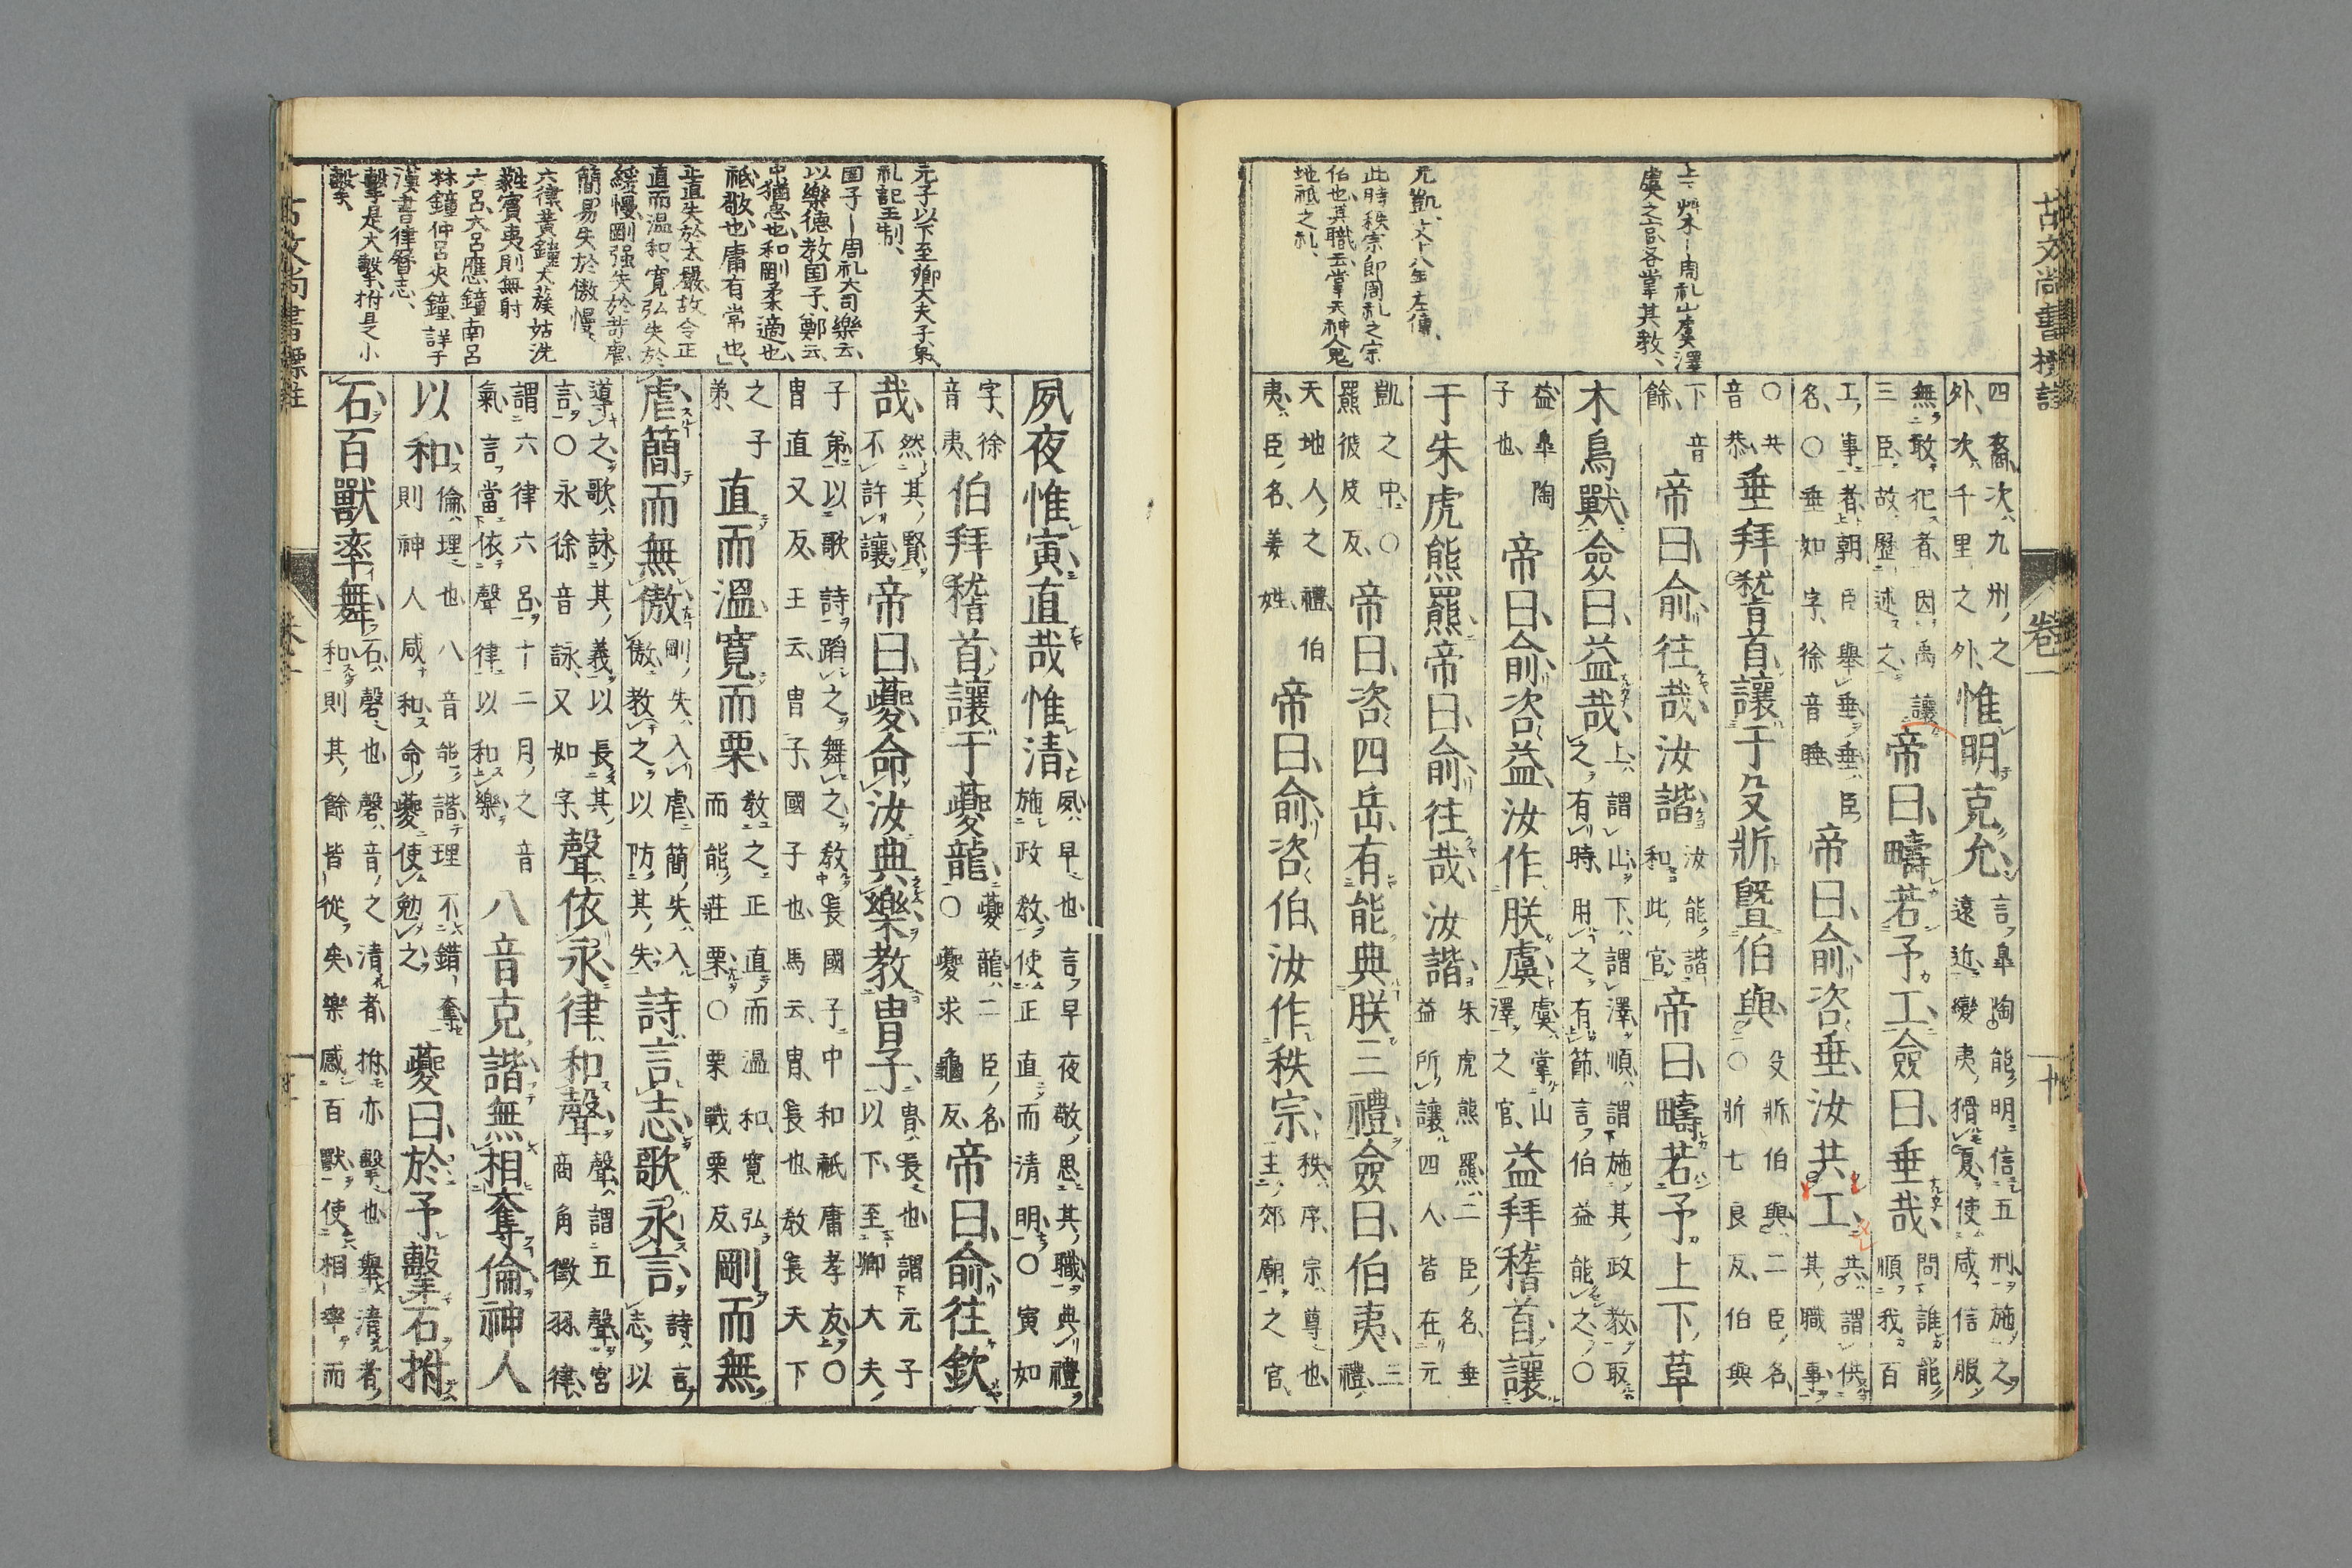 古文尚書標註
卷一
十
上下草木ー周礼山虞澤
虞之官各掌其教、
元凱、文十八年左傳、
此時秩宗即周礼之宗
伯也、其職云掌天神人鬼
地祇之礼、
四裔次九州之外次千里之外惟明克允言皋陶能明信五刑施之遠近蠻夷猾夏使咸信服
無敢犯者因禹讓三臣故歷述之帝曰疇若予工僉曰垂哉問誰能順我百
工事者朝臣舉垂垂臣名〇垂如字徐音睡帝曰俞咨垂汝共工共謂供其職事
〇共音恭垂拜稽首讓于殳斨曁伯與殳斨伯與二臣名〇斨七良反伯與
下音餘帝曰俞往哉汝諧汝能諧和此官帝曰疇若予上下草
木鳥獸僉曰益哉上謂山下謂澤順謂施其政教取之有時用之有節言伯益能之〇
益皋陶子也帝曰俞咨益汝作朕虞虞掌山澤之官益拜稽首讓
于朱虎熊羆帝曰俞往哉汝諧朱虎熊羆二臣名垂益所讓四人皆在元
凱之中〇羆彼皮反帝曰咨四岳有能典朕三禮僉曰伯夷三禮
天地人之禮伯夷臣名姜姓帝曰俞咨伯汝作秩宗秩序宗尊也主郊廟之官
元子以下至卿大夫子、見
礼記王制、
国子ー周礼大司樂云、
以樂德教国子、鄭云、
中猶忠也和剛柔適也、
祗敬也庸有常也、
正直失於太嚴故令正
直而温和、寬弘失於
緩慢、剛强失於苛虐、
簡易失於傲慢、
六律、黃鐘大蔟姑洗
蕤賓夷則無射
六呂、大呂應鐘南呂
林鐘仲呂夾鐘、詳于
漢書律曆志、
擊是大擊、拊是小
擊、
夙夜惟寅直哉惟清夙早也言早夜敬思其職典禮施政教使正直而清明〇寅如
字徐音夷伯拜稽首讓于夔龍夔龍二臣名〇夔求龜反帝曰俞往欽
哉然其賢不許讓帝曰夔命汝典樂教冑子冑長也謂元子以下至卿大夫
子弟以歌詩蹈之舞之教長國子中和祗庸孝友〇冑直又反王云冑子國子也馬云冑長也教長天下
之子弟直而溫寬而栗教之正直而溫和寬弘而能莊栗〇栗戰栗反剛而無
虐簡而無傲剛失入虐簡失入傲教之以防其失詩言志歌永言詩言志以
導之歌詠其義以長其言〇永徐音詠又如字聲依永律和聲聲謂五聲宮商角徵羽律
謂六律六呂十二月之音氣言當依聲律以和樂八音克諧無相奪倫神人
以和倫理也八音能諧理不錯奪則神人咸和命夔使勉之夔曰於予擊石拊
石百獸率舞石磬也磬音之清者拊亦擊也舉清者和則其餘皆從矣樂感百獸使相率而
古文尚書標註
卷一